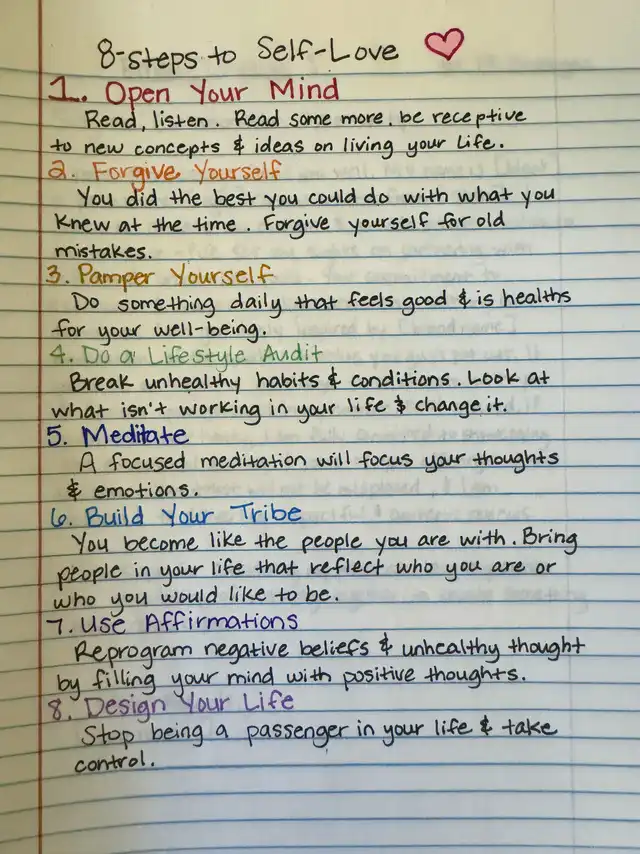 8-steps to Self-Love
1. Open Your Mind
Read, listen. Read some more, be receptive
to new concepts & ideas on living your life.
2. Forgive Yourself
You did the best you could do with what you
Knew at the time. Forgive yourself for old
mistakes.
3. Pamper Yourself
Do something daily that feels good & is healths
for your well-being.
4. Do a Lifestyle Audit
Break unhealthy habits & conditions. Look at
what isn't working in your life & change it.
5. Meditate
A focused meditation will focus your thoughts
& emotions.
6. Build Your Tribe
You become like the people you are with. Bring
people in your life that reflect who you are or
who you would like to be.
7. Use Affirmations
Reprogram negative beliefs & unhealthy thought
by filling your mind with positive thoughts.
8. Design Your Life
Stop being a passenger in your life & take
control.